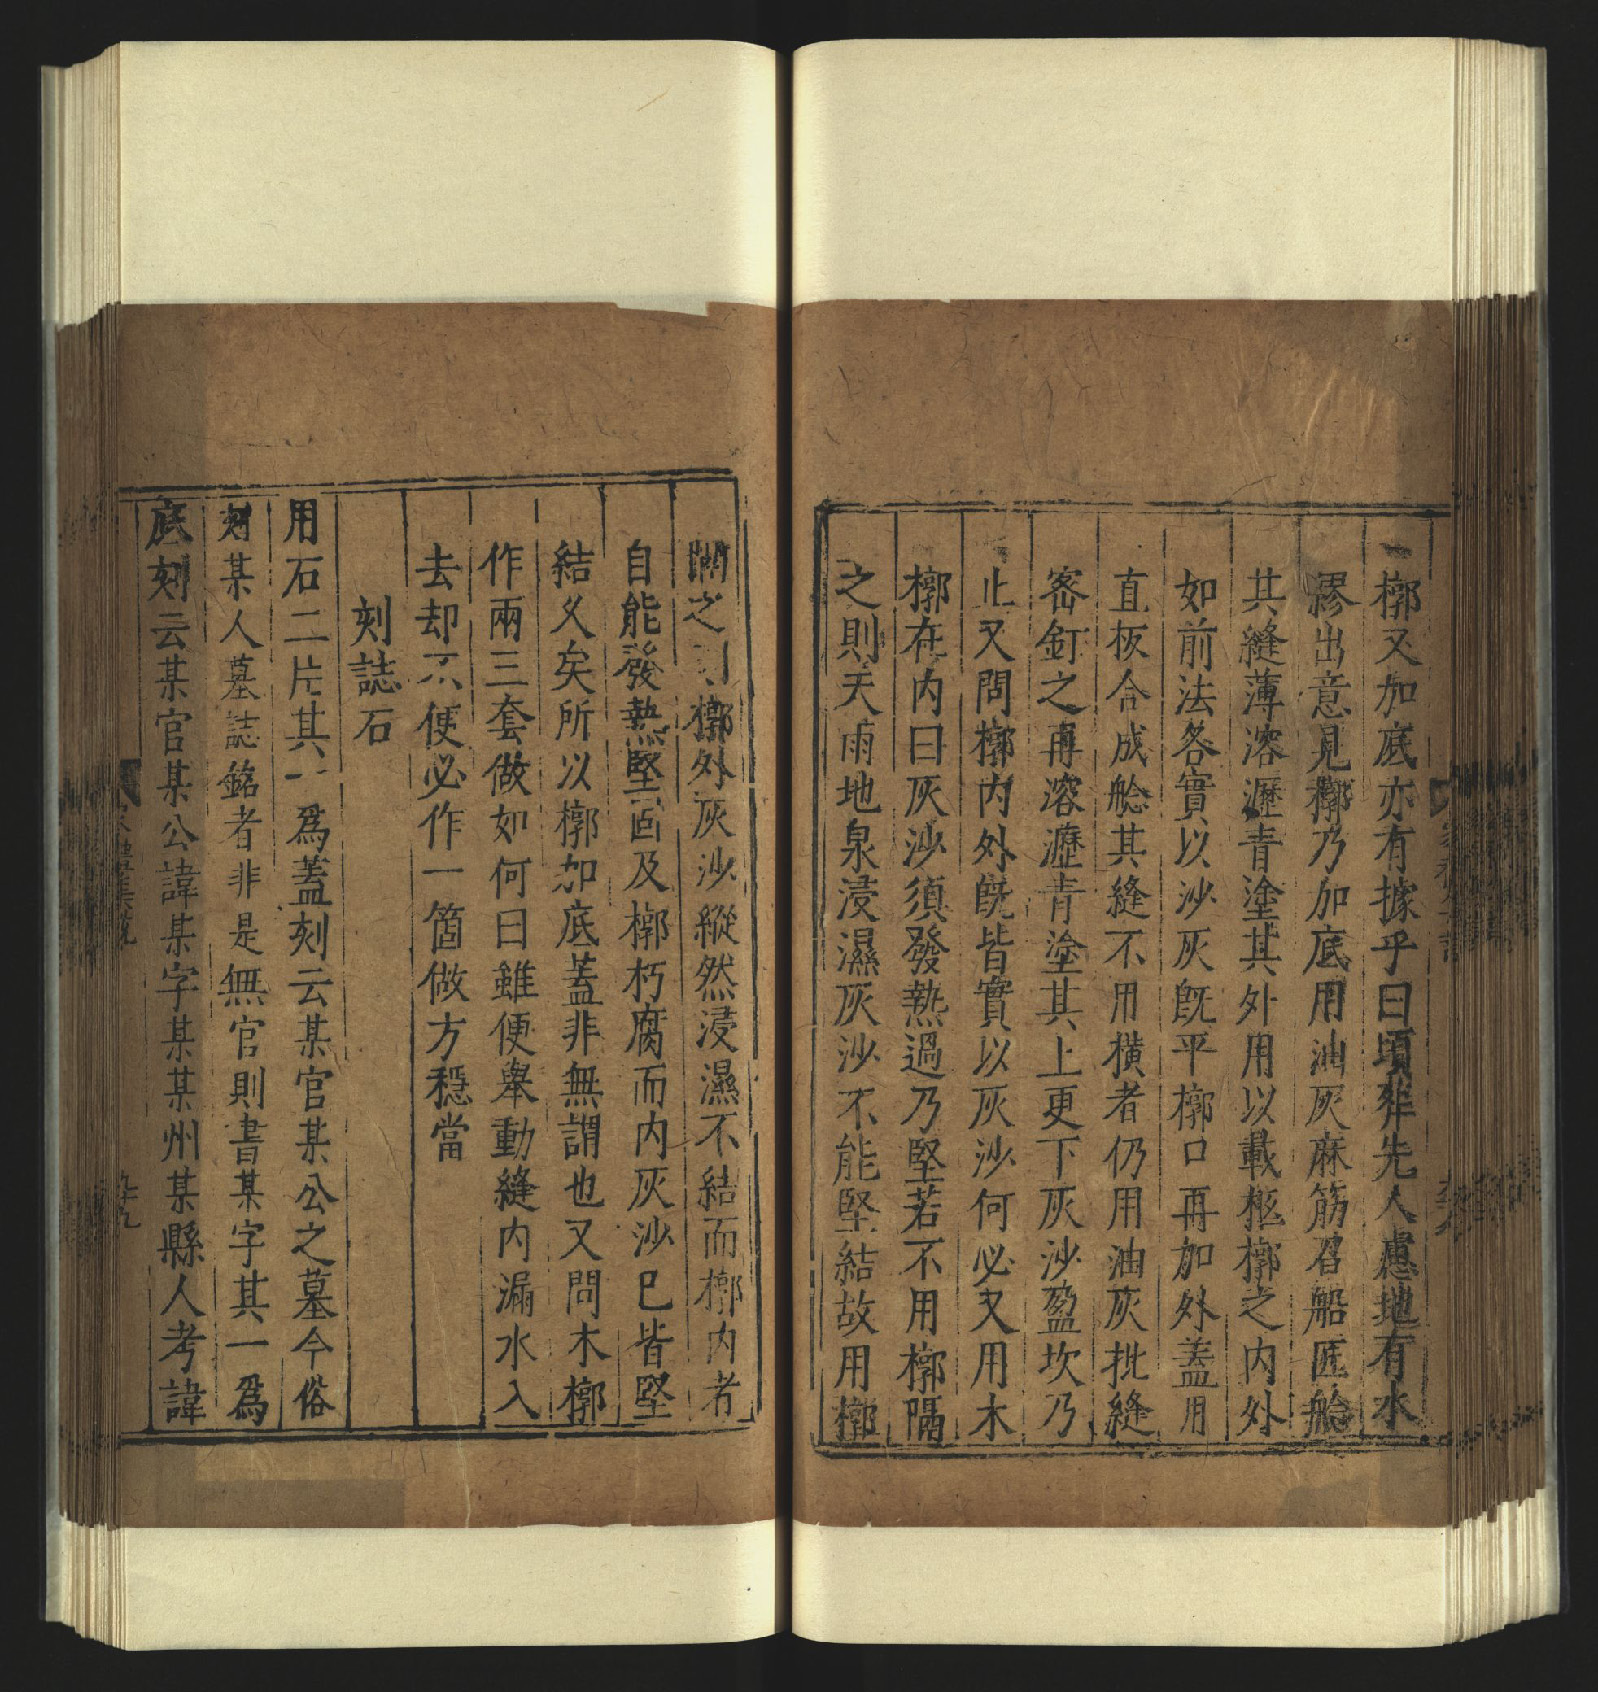 槨又加底亦有據乎曰頃葬先人慮地有水
謬出意見槨乃加底用油灰麻筋召船匠艌
其縫薄溶瀝青塗其外用以載柩槨之内外
如前法各實以沙灰旣平槨口再加外蓋用
直板合成艌其縫不用橫者仍用油灰批縫
密釘之再溶瀝青塗其上更下灰沙盈坎乃
止又問槨内外旣皆實以灰沙何必又用木
槨在内曰灰沙須發熱過乃堅若不用槨隔
之則天雨地泉浸濕灰沙不能堅結故用槨
隔之則槨外灰沙縱然浸濕不結而槨内者
自能發熱堅固及槨朽腐而内灰沙已皆堅
結乆矣所以槨加底蓋非無謂也又問木槨
作兩三套做如何曰雖便舉動縫内漏水入
去却不便必作一箇做方穩當
刻誌石
用石二片其一爲蓋刻云某官某公之墓今俗
刻某人墓誌銘者非是無官則書某字其一爲
底刻云某官某公諱某字某某州某縣人考諱